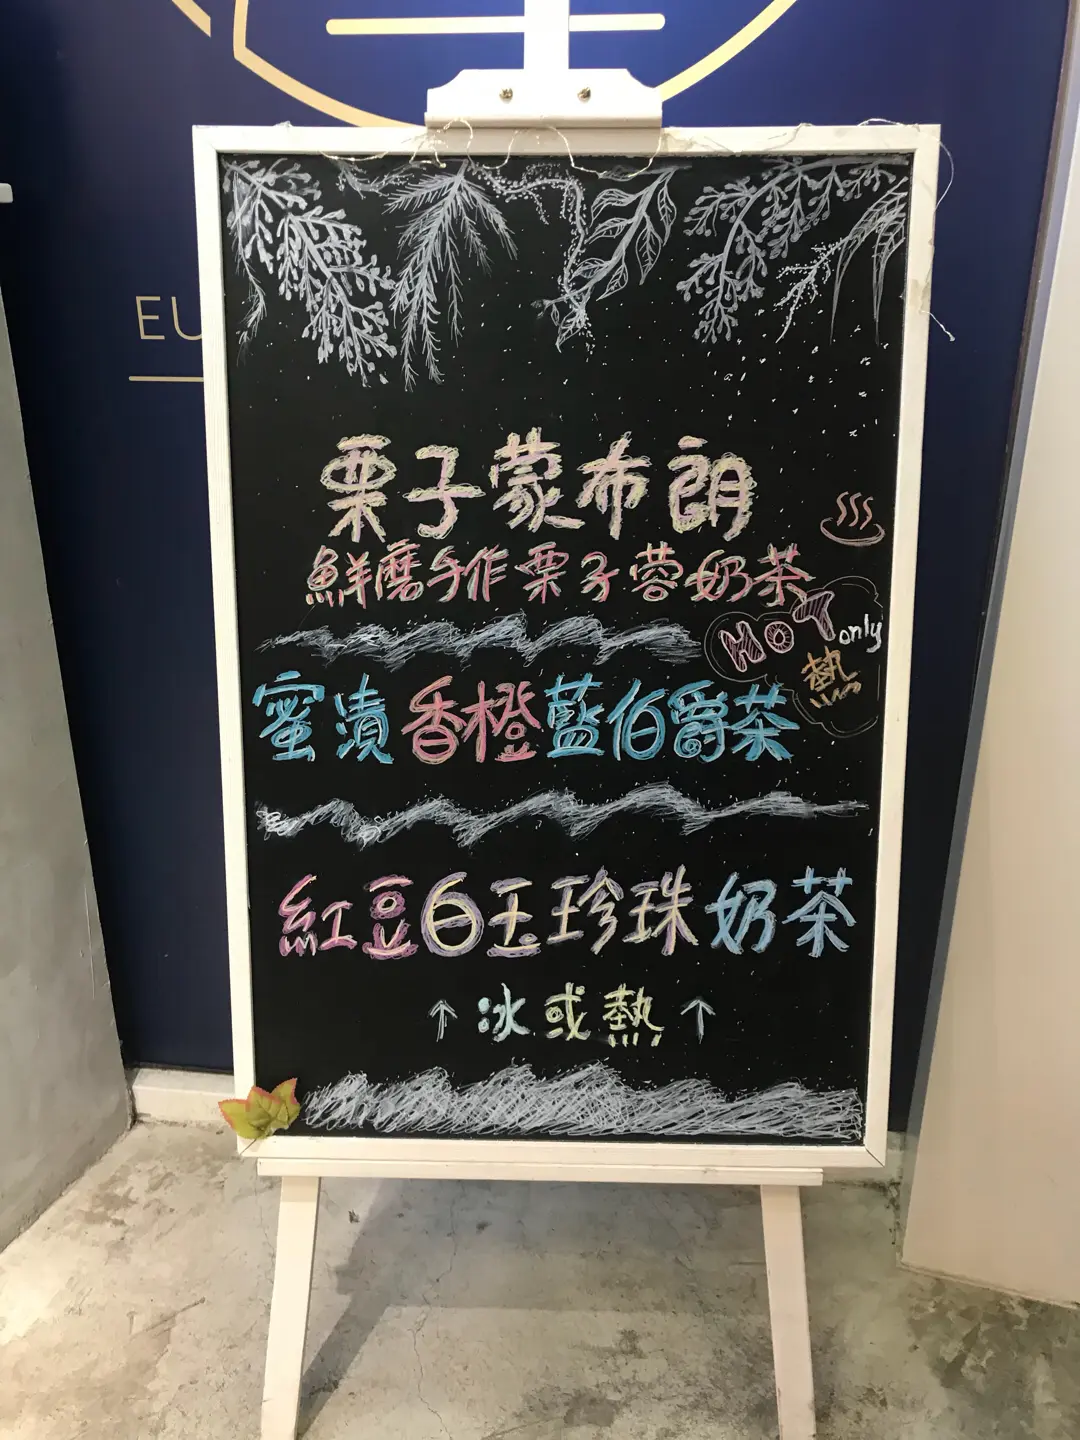 EU
栗子蒙布朗
鮮磨手作栗子蓉奶茶
HOT only
熱
蜜漬香橙藍伯爵茶
紅豆白玉珍珠奶茶
↑ 冰或熱 ↑